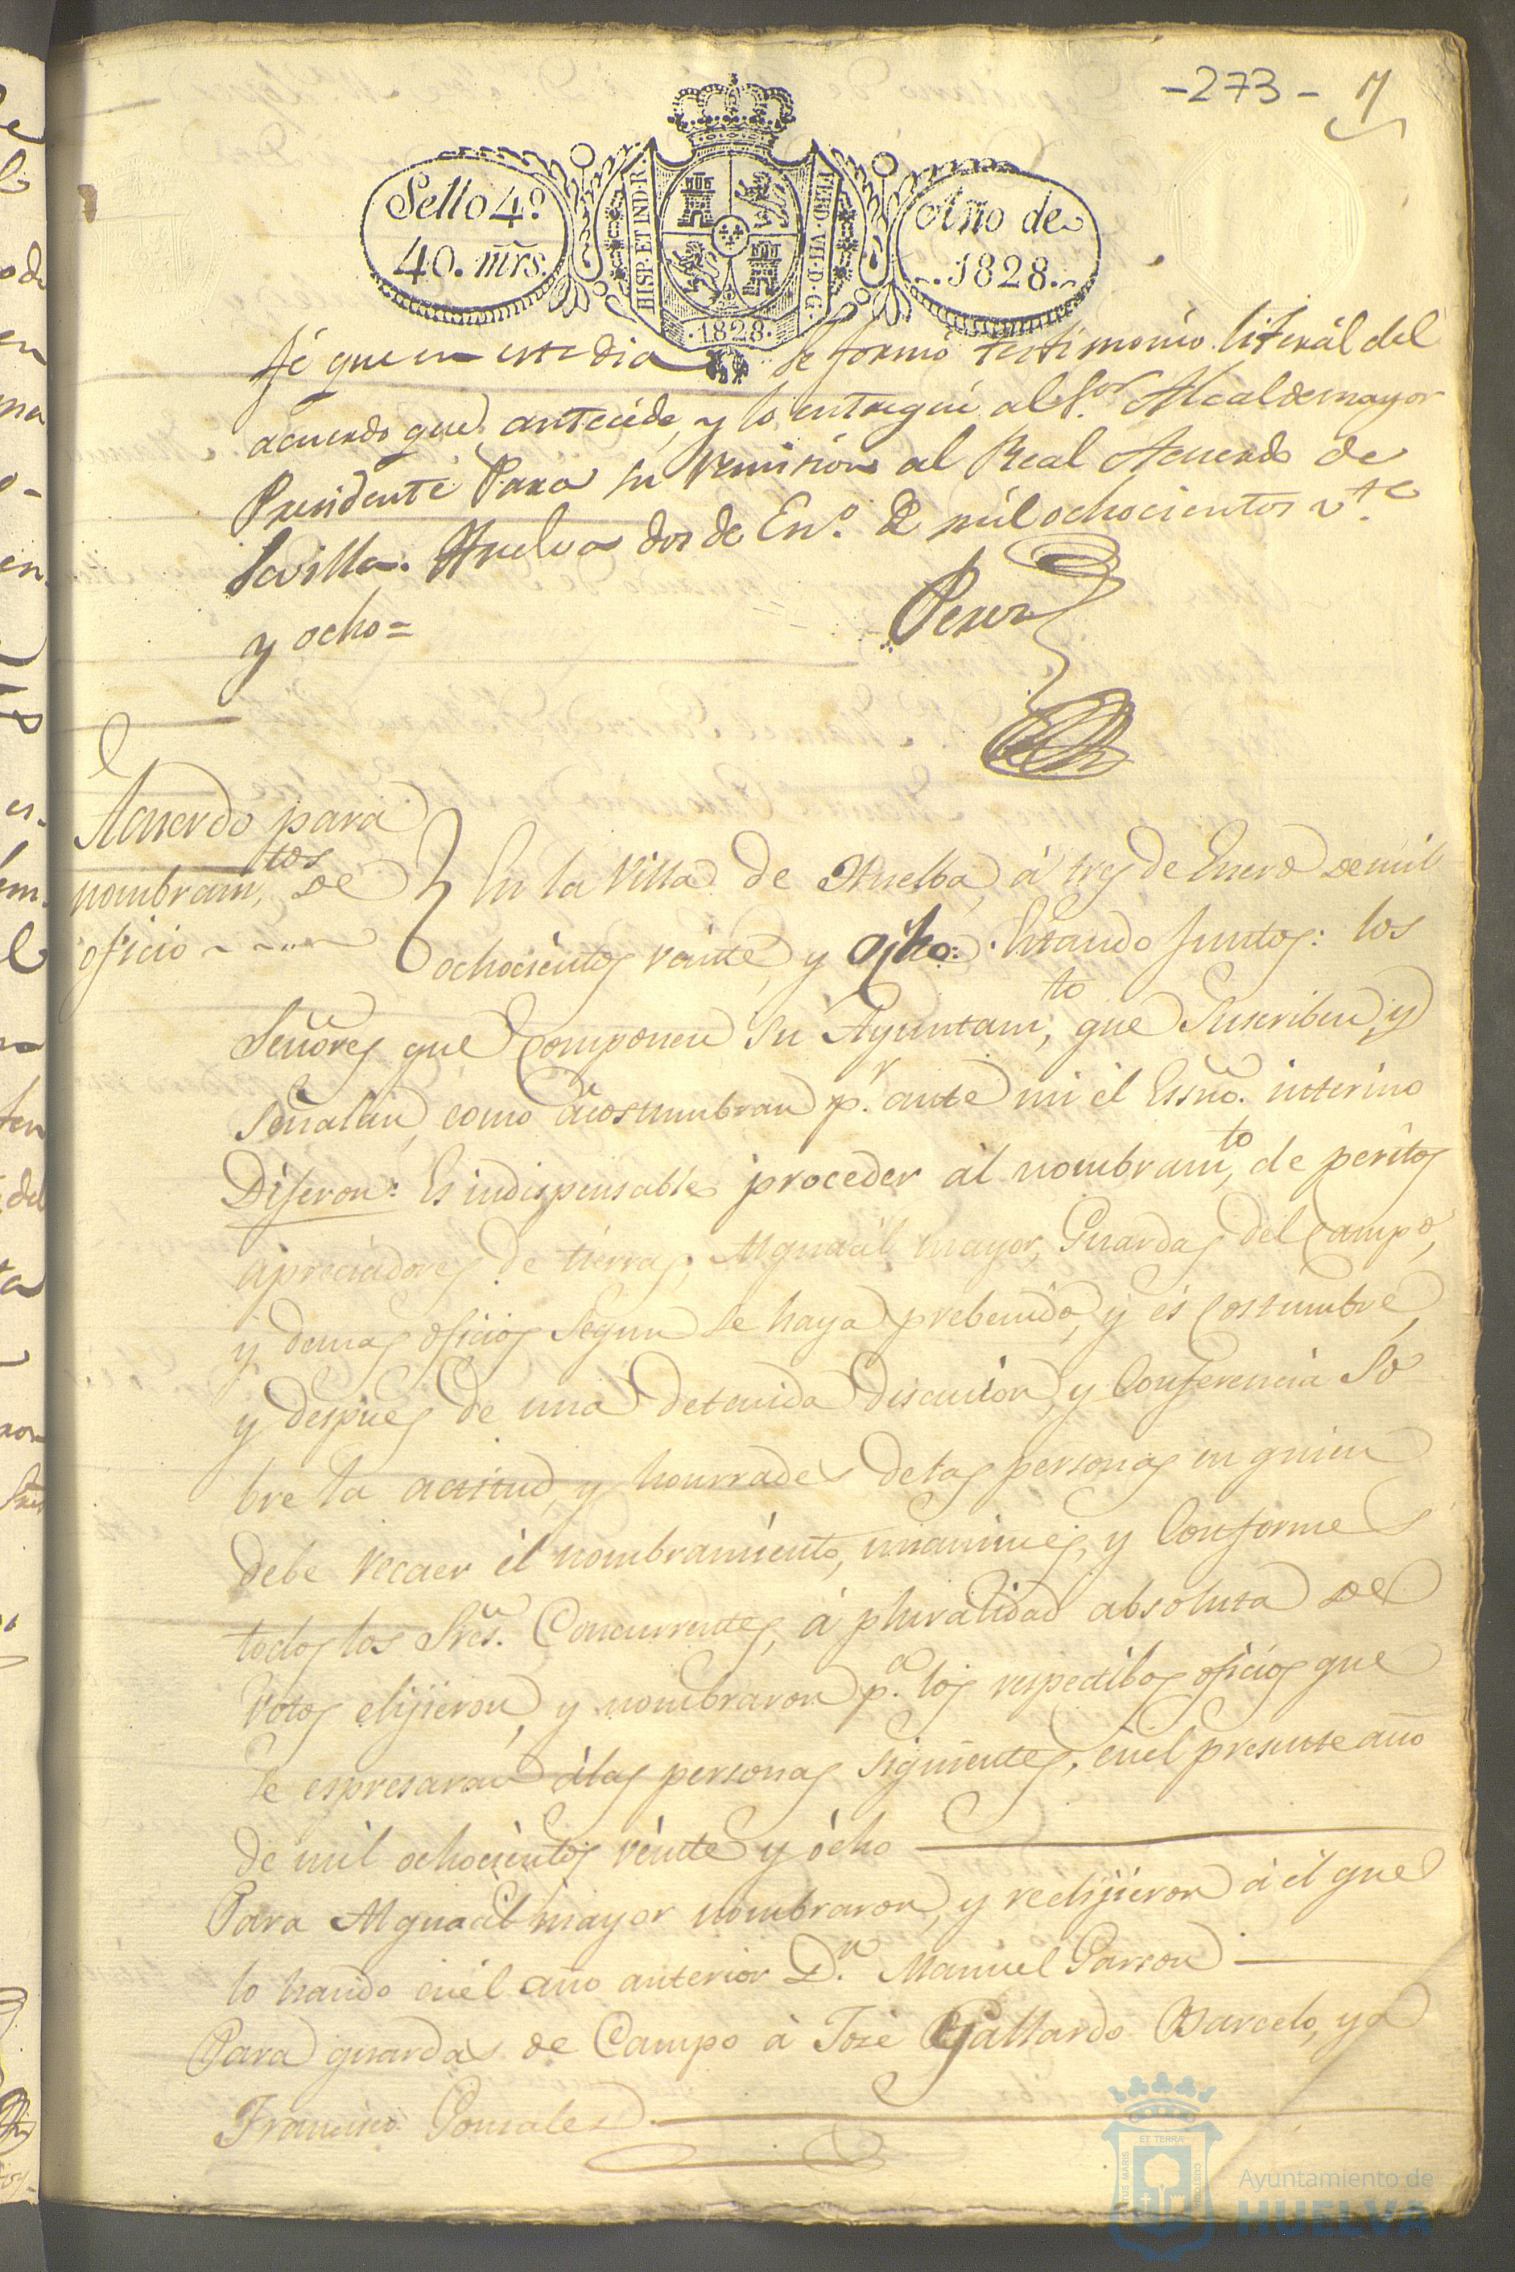 -273- 7
Sello 4º.
40. mrs.
HISP. ET IND. R.
FERD. VII. D. G.
.1828.
Año de
.1828.
fé que en este dia se formó testimonio literál del
acuerdo que antecéde, y lo entregué al Sor. Alcaldemayor
Presidente Para su remision al Real Acuerdo de
Sevilla. Huelva dos de Eno. de mil ochocientos vte.
y ocho=
Perez
Acuerdo para
nombramtos. de
oficio
En la Villa de Huelba, á tres de Enero de mil
ochocientos veinte, y ocho: Estando Juntos: los
Señores que componen su Ayuntamto, que Suscriben, y
Señalan, como acostumbran pr. ante mi el Essno. interino
Dijeron: Es indispensable proceder al nombramto, de peritos
apreciadores de tierras; Alguacil mayor, Guardas del Campo,
y demas oficios Segun se haya prebenido, y és Costumbre,
y despues de una detenida discucion, y Conferencia So
bre la actitud, y honrrades delas personas en quien
debe recaer él nombramiento, unanimes, y Conformes
todos los Sres. Concurrentes, á pluralidad absoluta de
Votos elijieron, y nombraron pa. los respectibos oficios que
Se espresaran álas personas Siguientes, enel presente año
de mil ochocientos veinte y ócho
Para Alguacil mayor nombraron, y reelijieron á él que
lo hasido enél año anterior Dn. Manuel Garzon
Para guardas de Campo á José Gallardo Barcelo, y á
Francisco Gonzales
ET TERRA
Ayuntamiento de
HUELVA